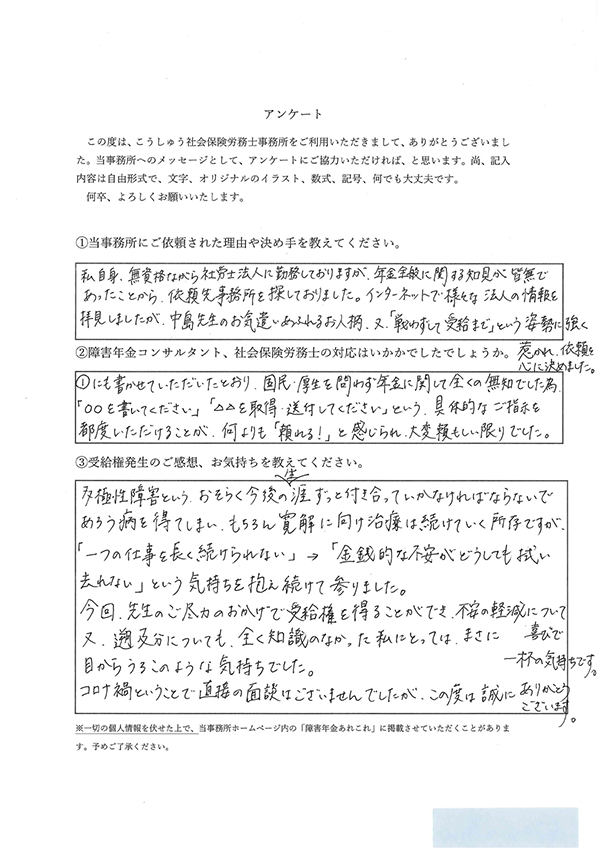 アンケート
この度は、こうしゅう社会保険労務士事務所をご利用いただきまして、ありがとうございまし
た。当事務所へのメッセージとして、アンケートにご協力いただければ、と思います。尚、記入
内容は自由形式で、文字、オリジナルのイラスト、数式、記号、何でも大丈夫です。
何卒、よろしくお願いいたします。
①当事務所にご依頼された理由や決め手を教えてください。
私自身、無資格ながら社労士法人に勤務しておりますが、年金全般に関する知見が皆無で
あったことから、依頼先事務所を探しておりました。インターネットで様々な法人の情報を
拝見しましたが、中島先生のお気遣いあふれるお人柄、又、「戦わずして受給まで」という姿勢に強く
惹かれ、依頼を
心に決めました。
②障害年金コンサルタント、社会保険労務士の対応はいかかでしたでしょうか。
①にも書かせていただいたとおり、国民・厚生を問わず年金に関して全くの無知でした為、
「○○を書いてください」「△△を取得・送付してください」という、具体的なご指示を
都度いただけることが、何よりも「頼れる!」と感じられ、大変頼もしい限りでした。
③受給権発生のご感想、お気持ちを教えてください。
双極性障害という、おそらく今後の生涯ずっと付き合っていかなければならないで
あろう病を得てしまい、もちろん寛解に向け治療は続けていく所存ですが、
「一つの仕事を長く続けられない」→「金銭的な不安がどうしても拭い
去れない」という気持ちを抱え続けて参りました。
今回、先生のご尽力のおかげで受給権を得ることができ、不安の軽減について
又、遡及分についても、全く知識のなかった私にとっては、まさに
目からうろこのような気持ちでした。
喜びで
一杯の気持ちです。
コロナ禍ということで直接の面談はございませんでしたが、この度は誠に
ありがとう
ございます。
※一切の個人情報を伏せた上で、当事務所ホームページ内の「障害年金あれこれ」に掲載させていただくことがありま
す。予めご了承ください。